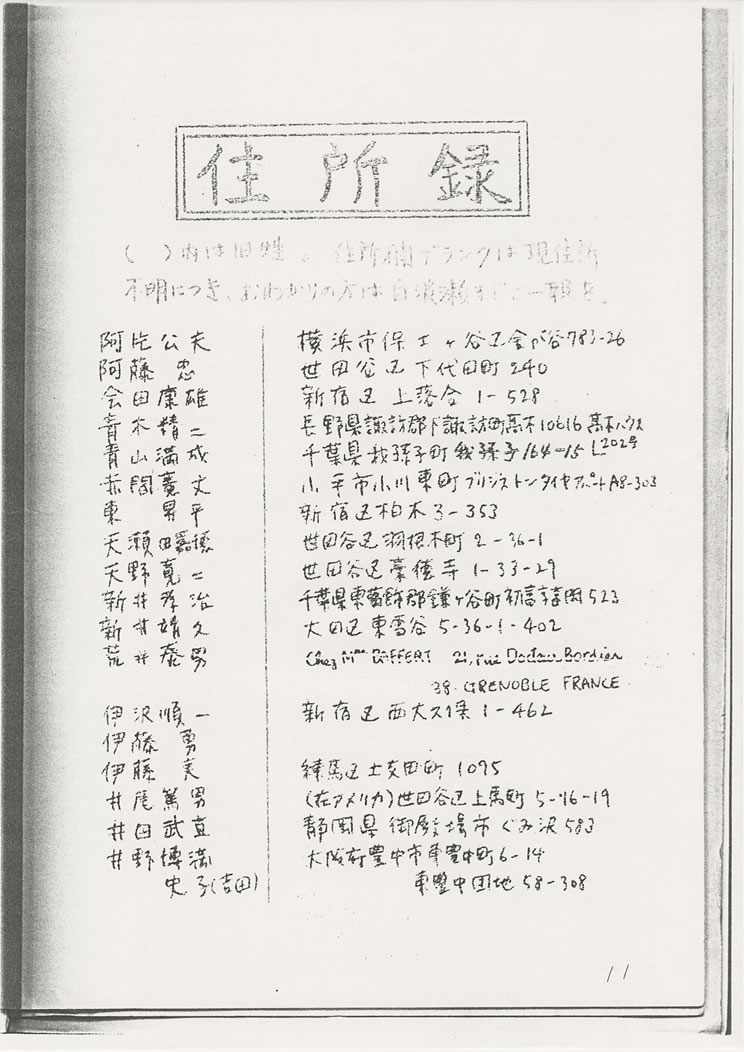 住所録
( )内は旧姓。住所欄ブランクは現住所
不明につき、おわかりの方は白須瀬まで
阿 公夫 横浜市保土ヶ谷区 谷783-26
阿藤 忠 世田谷区下代田町240
会田康雄 新宿区上落合1-528
青木精二 長野県諏訪郡下諏訪町高木10616 高木ハウス
青山満成 千葉県我孫子町我孫子164-15 202号
赤 丈 小平市小川東町ブリジストンタイヤアパートA8-303
東 昇平 新宿区柏木3-353
天瀬田 世田谷区羽根木町2-36-1
天野 二 世田谷区豪徳寺1-33-29
新井孝治 千葉県東葛飾郡鎌ヶ谷町初富 523
新井靖久 大田区東雪谷5-36-1-402
荒井泰男 Chez Mme DAFFERT 21, rue Docteur Bordier
38. GRENOBLE FRANCE
伊沢順一 新宿区西大久保1-462
伊藤 勇
伊藤 美 練馬区土支田町1095
井尾篤男 (在アメリカ)世田谷区上馬町5-46-19
井田武直 静岡県御殿場市ぐみ沢583
井野博満 大阪府豊中市東豊中町6-14
史子(吉田) 東豊中団地58-308
11